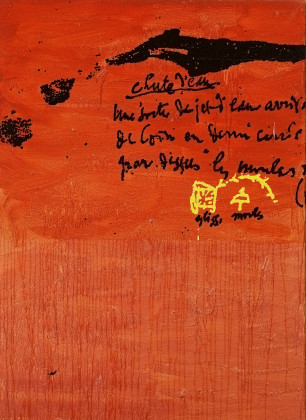 chute d'eau
une sorte de jet d'eau arriv
de loin en demi
par dessus les moules
moules